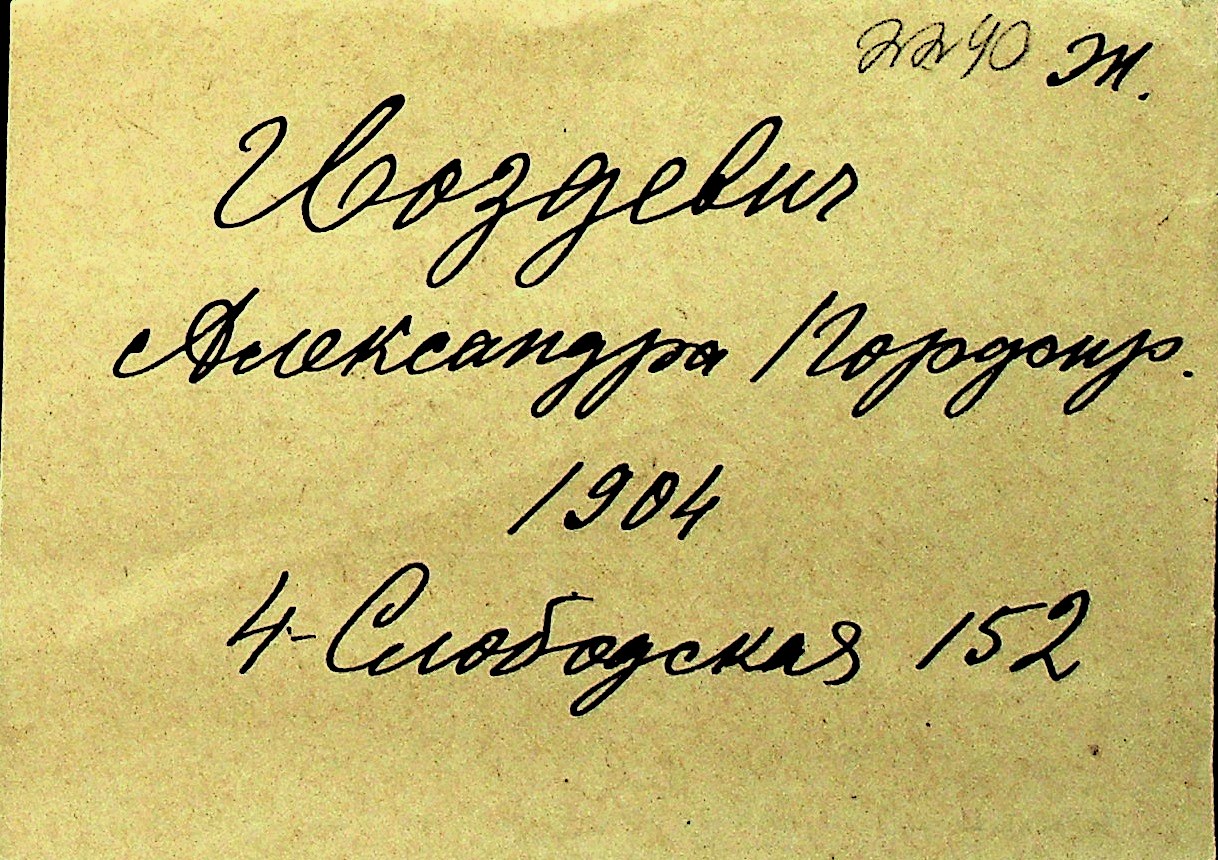 2240 Ж.
Гвоздевич
Александра Порфир.
1904
4-Слободская 152